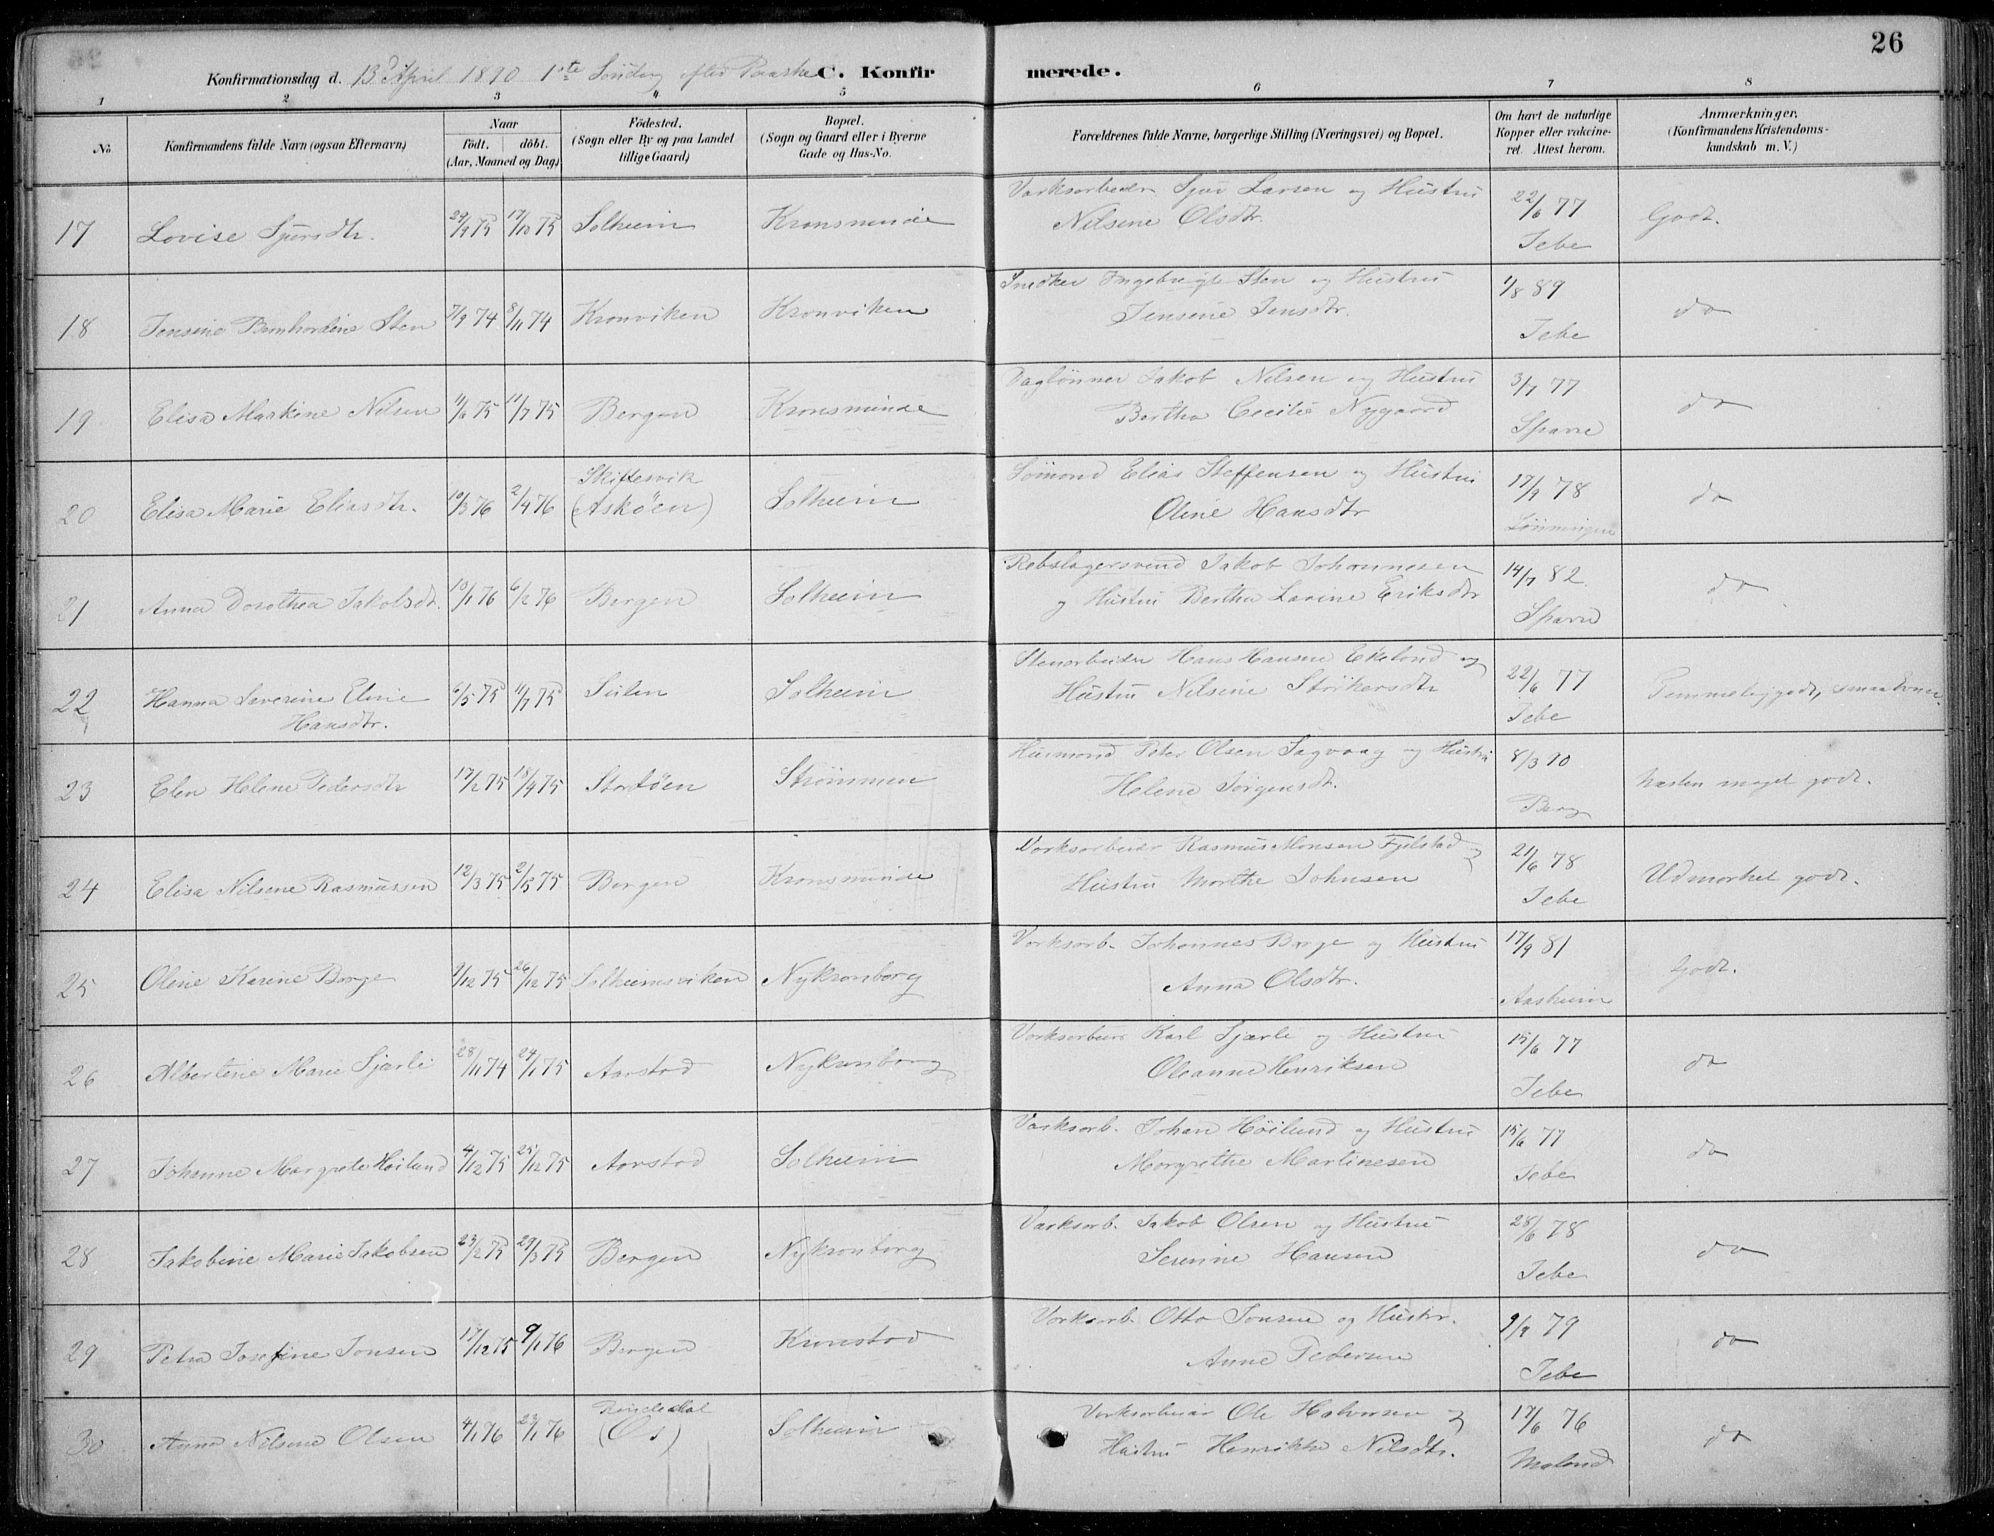 26
Konfirmationsdag d. 13 April 1890 1ste Søndag efter Paaske C. Konfirmerede.
1 2 3 4 5 6 7 8
No
Konfirmandens fulde Navn (ogsaa Efternavn)
Naar
födt. döbt.
(Aar, Maaned og Dag)
Födested.
(Sogn eller By og paa Landet
tillige Gaard)
Bopæl.
(Sogn og Gaard eller i Byerne
Gade og Hus-No.
Forældrenes fulde Navne, borgerlige Stilling (Næringsvei) og Bopæl.
Om havt de naturlige
Kopper eller vakcine-
ret. Attest herom.
Anmærkninger.
(Konfirmandens Kristendoms-
kundskab m. V.)
17 Lovise Sjursdtr. 29/9 75 17/10 75 Solheim Kronsminde Værksarbeider Sjur Larsen og Hustru
Nilsene Olsdtr. 22/6 77 Jebe Godt.
18 Jensine Bernhardine Sten 7/9 74 8/11 74 Kronviken Kronviken Snedker Ingebrigt Sten og Hustru
Jensine Jensdtr. 1/8 89 Jebe do
19 Elisa Maskine Nilsen 11/6 75 11/7 75 Bergen Kronsminde Daglønner Jakob Nilsen og Hustru
Bertha Cecilie Nygaard 3/7 77 Sparre do
20 Elisa Marie Eliasdtr. 10/3 76 2/4 76 Skiftesvik
(Askøen) Solheim Sømand Elias Steffensen og Hustru
Oline Hansdtr 17/9 78 do
21 Anna Dorothea Jakobsdtr. 10/1 76 6/2 76 Bergen Solheim Rebslagersvend Jakob Johannesen
og Hustru Bertha Lavine Eriksdtr 14/7 82 Sparre do
22 Hanna Severine Eline
Hansdtr. 6/5 75 11/7 75 Sulen Solheim Stenarbeider Hans Hansen Ekeland og
Hustru Nilsine Størkersdtr 22/6 77 Jebe Temmelig godt,
23 Elen Helene Pedersdtr 17/2 75 18/9 75 Stordøen Strømmen Husmand Peter Olsen Sagvaag og Hustru
Helene Jørgensdtr. 8/3 90 Berg næsten meget godt.
24 Elisa Nilsene Rasmussen 12/3 75 2/5 75 Bergen Kronsminde Værksarbeider Rasmus Monsen Fjelstad og
Hustru Marthe Johnsen 21/6 78 Jebe Udmærket godt.
25 Oline Karine Borge 9/12 75 26/12 75 Solheimsviken Nykronborg Værksarb. Johannes Borge og Hustru
Anna Olsdtr. 17/9 81 Aasheim Godt.
26 Albertine Marie Sjærli 28/11 74 24/1 75 Aarstad Nykronborg Værksarbeid. Karl Sjærle og Hustru
Oleanne Henriksen 15/6 77 Jebe do
27 Johanne Margrete Høilund 4/12 75 25/12 75 Aarstad Solheim Værksarb. Johan Høilund og Hustru
Margrethe Martinesen 15/6 77 Jebe do
28 Jakobine Marie Jakobsen 23/2 75 29/3 75 Bergen Nykronborg Værksarb. Jakob Olsen og Hustru
Serine Hansen 28/6 78 Jebe do
29 Petra Josefine Jonsen 17/12 75 9/1 76 Bergen Kronstad Værksarb. Otto Jonsen og Hustr.
Anne Pedersen 9/9 79 Jebe do
30 Anna Nilsene Olsen 4/1 76 23/1 76 (Os) Solheim Værksarbeider Ole Halvorsen og
Hustru Henrikke Nilsdtr. 17/6 76 Maland do